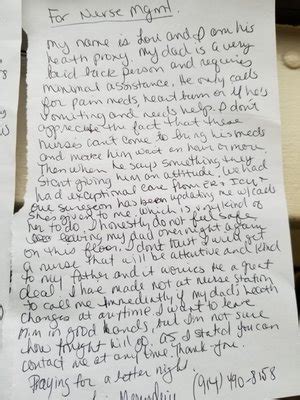 For Nurse Mgmt.
My name is Lou and I am his
health proxy. My dad is a very
laid back person and requires
minimal assistance. He only calls
for pain meds, heart burn or if he's
vomiting and needs help. I don't
appreciate the fact that these
nurses can't come to bring his meds
and make him wait an hour or more.
Then when he says something they
start giving him an attitude. We had
had exceptional care from
Our surgeon has been updating me w/ calls
She's given to me, which is very kind of
her to do. I honestly do not feel safe
leaving my dad overnight again
on this floor. I don't trust I will get
a nurse that will be attentive and kind
to my father and it worries me a great
deal. I have made not at nurse station
to call me immediately if my dad's health
changes at anytime. I want to leave
him in good hands, but I'm not sure
how tonight will go. As I stated you can
contact me at any time. Thank you.
Praying for a better night.
(914) 490-8158